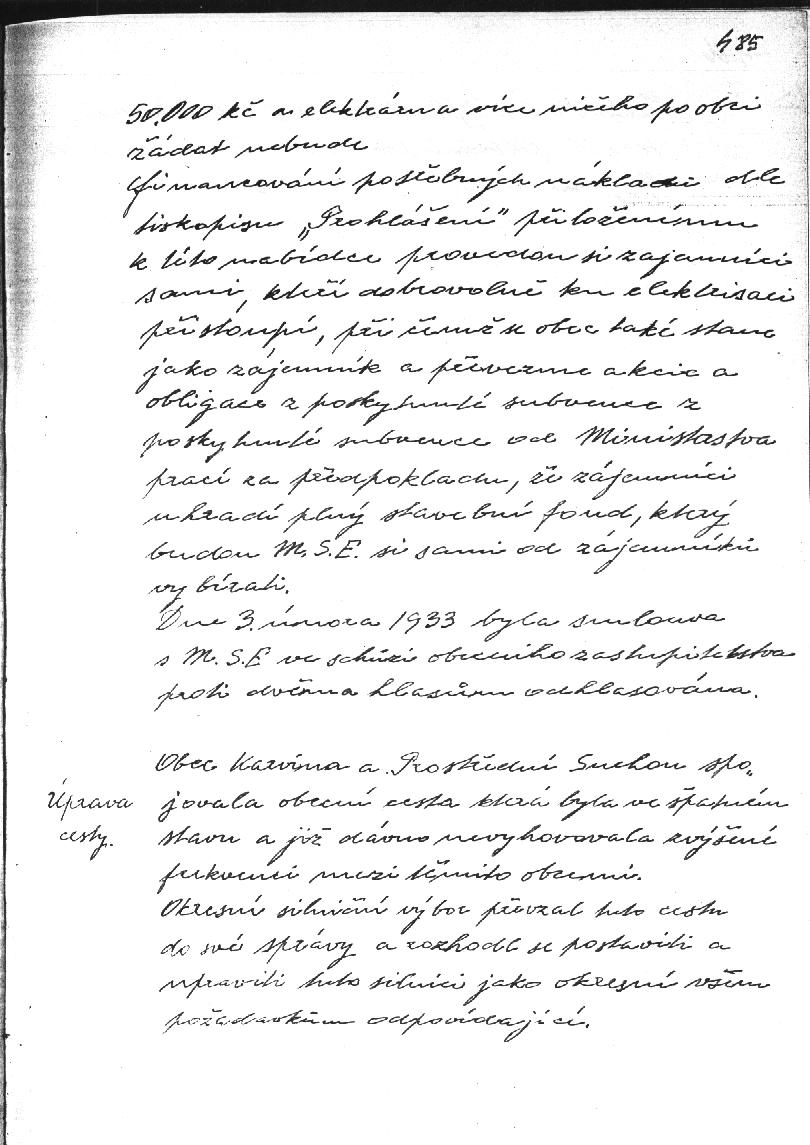 485
50.000 kč a elektrárna více ničeho po obci
žádat nebude
financování potřebných nákladů dle
tiskopisu „Prohlášení" přiloženému
k této nabídce provedou si zajemníci
sami, kteří dobrovolně ku elektrisaci
přistoupí, při čemž se obec také stane
jako zájemník a převezme akcie a
obligace z poskytnuté subvence z
poskytnuté subvence od Ministastva
prací za předpokladu, že zájemníci
uhradí plný stavební fond, který
budou M.S.E. si sami od zájemníků
vybírati.
Dne 3. února 1933 byla smlouva
s M.S.E ve schůzi obecního zastupitelstva
proti dvěma hlasům odhlasována.
Úprava
cesty.
Obec Karvina a Prostřední Suchou spo„
jovala obecní cesta která byla ve špatném
stavu a již dávno nevyhovovala zvýšené
frekvenci mezi těmito obcemi.
Okresní silniční výbor převzal tuto cestu
do své správy a rozhodl se postaviti a
upraviti tuto silnici jako okresní všem
požadavkům odpovídající.